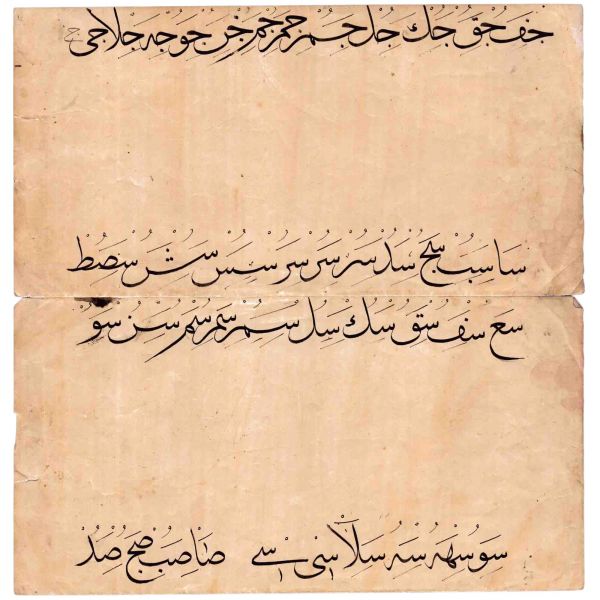 جف جق جك جل جم جمر جمر جن جو جه جلا جى
سا سب سج سد سر سر سر سس سش سص سط
سع سف سق سك سل سم سمر سمر سن سو
سو سهه سه سلا سى سے صا صب صج صد